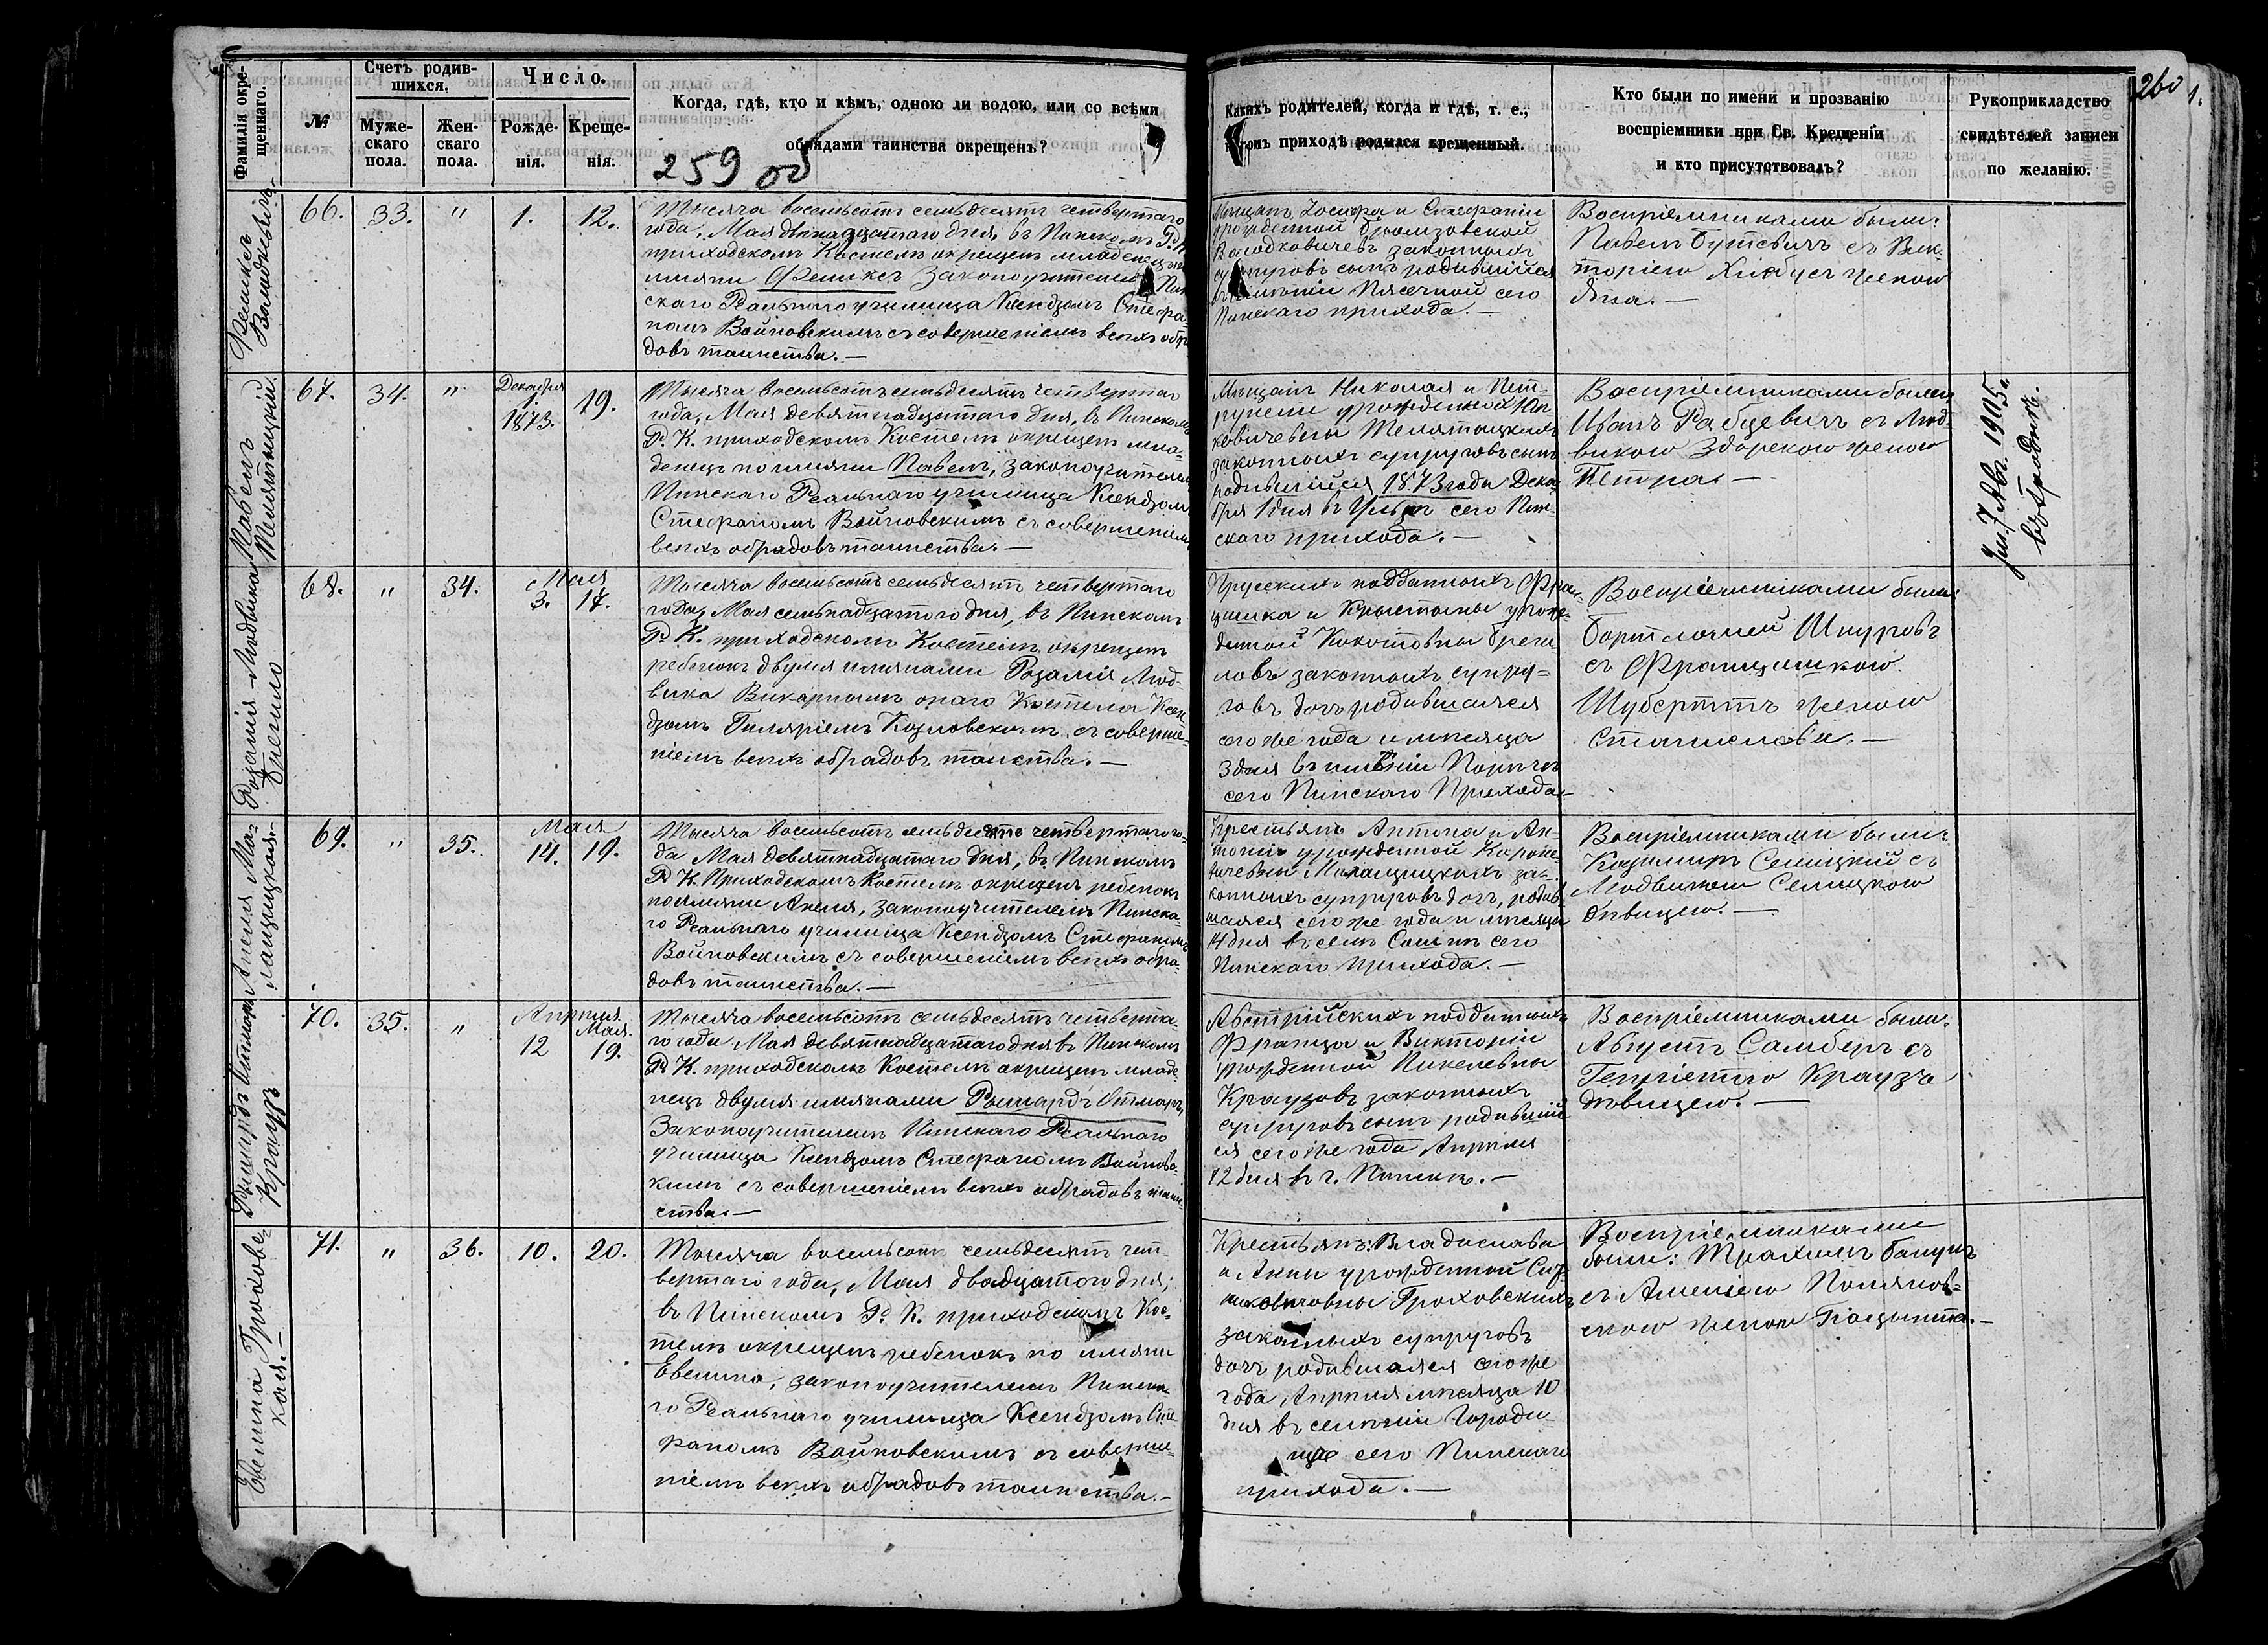 260
1.
Фамилія окре-
щеннаго.
№
Счетъ родив-
шихся.
Муже-
скаго
пола.
Жен-
скаго
пола.
Число.
Рожде-
нія.
Креще-
нія.
Когда, гдѣ, кто и кѣмъ, одною ли водою, или со всѣми
обрядами таинства окрещенъ?
259 об
Какихъ родителей, когда и гдѣ, т. е.,
приходѣ родился крещенный.
Кто были по имени и прозванію
воспріемники при Св. Крещеніи
и кто присутствовалъ?
Рукоприкладство
свидѣтелей записи
по желанію.
Феликсъ
Володкевичъ.
66.
33.
"
1.
12.
Тысяча восемьсотъ семьдесятъ четвертаго
года, Мая двѣнадцатаго дня, въ Пинскомъ Р. К.
приходскомъ Костелѣ окрещенъ младенецъ
имяни Феликсъ Законоучителемъ Пин
скаго Реальнаго училища Ксендзомъ Стефа-
номъ Войновскимъ съ совершеніемъ всѣхъ обря
довъ таинства.—
Мѣщанъ Іосифа и Стефаніи
урожденной
законныхъ
супруговъ сынъ родившійся
въ имѣніи Пясечной сего
Пинскаго прихода.—
Воспріемниками были:
Павелъ Буткевичъ съ Вик-
торіею женою
Яна.—
Павелъ
Телятицкій
67.
34.
"
Декабря
1.
1873.
19.
Тысяча восемьсотъ семьдесятъ четвертаго
года, Мая девятнадцатаго дня, въ Пинскомъ
Р. К. приходскомъ Костелѣ окрещенъ мла-
денецъ по имяни Павелъ, законоучителемъ
Пинскаго Реальнаго училища Ксендзомъ
Стефаномъ Войновскимъ съ совершеніемъ
всѣхъ обрядовъ таинства.—
Мѣщанъ Николая и Пет-
рунели урожденной Юн-
кевичевны Телятицкихъ
законныхъ супруговъ сынъ
родившійся 1873 года Дека-
бря 1 дня въ сего Пин-
скаго прихода.—
Воспріемниками были,
Иванъ Рабцевичъ съ Люд-
викою Здорскою женою
Петра.—
7 Авг. 1905 г.
Розалія-Людвика
Брегило
68.
"
34.
Мая
3. 17.
Тысяча восемьсотъ семьдесятъ четвертаго
года, Мая семьнадцатого дня, въ Пинскомъ
Р. К. приходскомъ Костелѣ окрещенъ
ребенокъ двумя имянами Розалія Люд-
вика Викарнымъ онаго Костела Ксен-
дзомъ Гиляріемъ Козловскимъ, съ соверше-
ніемъ всѣхъ обрядовъ таинства.—
Прусскихъ подданныхъ Фран-
цишка и Крыстыны урож-
денной
законныхъ супру-
говъ дочь родившаяся
сего же года и мѣсяца
3 дня въ имѣніи
сего Пинскаго Прихода.—
Воспріемниками были:
Бортломей Шнуровъ
съ Францишкою
Шубертъ женою
Станислава.—
Анеля Ма-
лащицкая.
69.
"
35.
Мая
14. 19.
Тысяча восемьсотъ семьдесятъ четвертаго го-
да Мая девятнадцатаго дня, въ Пинскомъ
Р. К. Приходскомъ Костелѣ окрещенъ ребенокъ
по имяни Анеля, законоучителемъ Пинска-
го Реальнаго училища Ксендзомъ Стефаномъ
Войновскимъ съ совершеніемъ всѣхъ обря-
довъ таинства.—
Крестьянъ Антона и Ан-
тоніи урожденной Короле-
вичевны Малащицкихъ за-
конныхъ супруговъ дочь, родив-
шаяся сего же года и мѣсяца
14 дня въ селѣ сего
Пинскаго прихода.—
Воспріемниками были:
Казимиръ Селицкій съ
Людвикою Селицкою
дѣвицею.—
Рышардъ Отмаръ
Краузъ
70.
35.
"
Апрѣля
12
Мая.
19.
Тысяча восемьсотъ семьдесятъ четверта-
го года Мая девятнадцатаго дня въ Пинскомъ
Р. К. приходскомъ Костелѣ окрещенъ младе-
нецъ двумя имянами Рышардъ Отмаръ,
Законоучителемъ Пинскаго Реальнаго
училища Ксендзомъ Стефаномъ Войновс-
кимъ съ совершеніемъ всѣхъ обрядовъ таин-
ства.—
Австрійскихъ подданныхъ
Франца и Викторіи
урожденной
Краузовъ законныхъ
супруговъ сынъ родившій
ся сего же года Апрѣля
12 дня въ г. Пинскѣ.—
Воспріемниками были:
Августъ Самберъ съ
Генріетою Краузъ
дѣвицею.—
Евелина Гроховс-
кая.—
71.
"
36.
10.
20.
Тысяча восемьсотъ семьдесятъ чет-
вертаго года, Мая двадцатого дня,
въ Пинскомъ Р. К. приходскомъ Кос-
телѣ окрещенъ ребенокъ по имяни
Евелина, законоучителемъ Пинска-
го Реальнаго училища Ксендзомъ Сте
фаномъ Войновскимъ съ соверше-
ніемъ всѣхъ обрядовъ таинства.—
Крестьянъ: Владислава
и Анны урожденной
Гроховскихъ
законныхъ супруговъ
дочь родившаяся сего же
года, Апрѣля мѣсяца 10
дня въ селеніи Городи-
ще сего Пинскаго
прихода.—
Воспріемниками
были: Трахимъ
съ Амеліею Полянов-
скою женою Гіацынта.—